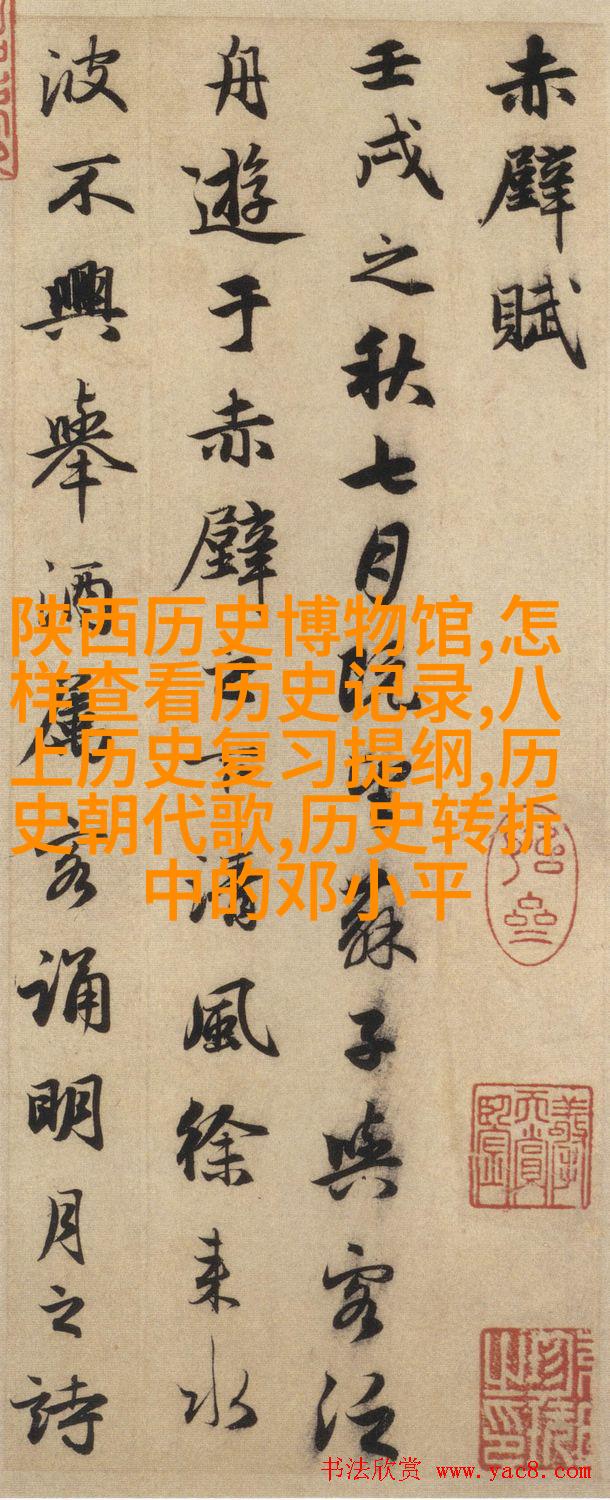 赤壁賦
壬戌之秋七月既望蘇子與客泛
舟遊于赤壁之下清風徐来水
波不興舉酒屬客誦明月之詩
陕西历史博物馆,怎
样查看历史记录,八
上历史复习提纲,历
史朝代歌,历史转折
中的邓小平
书法欣赏 www.yac8.com